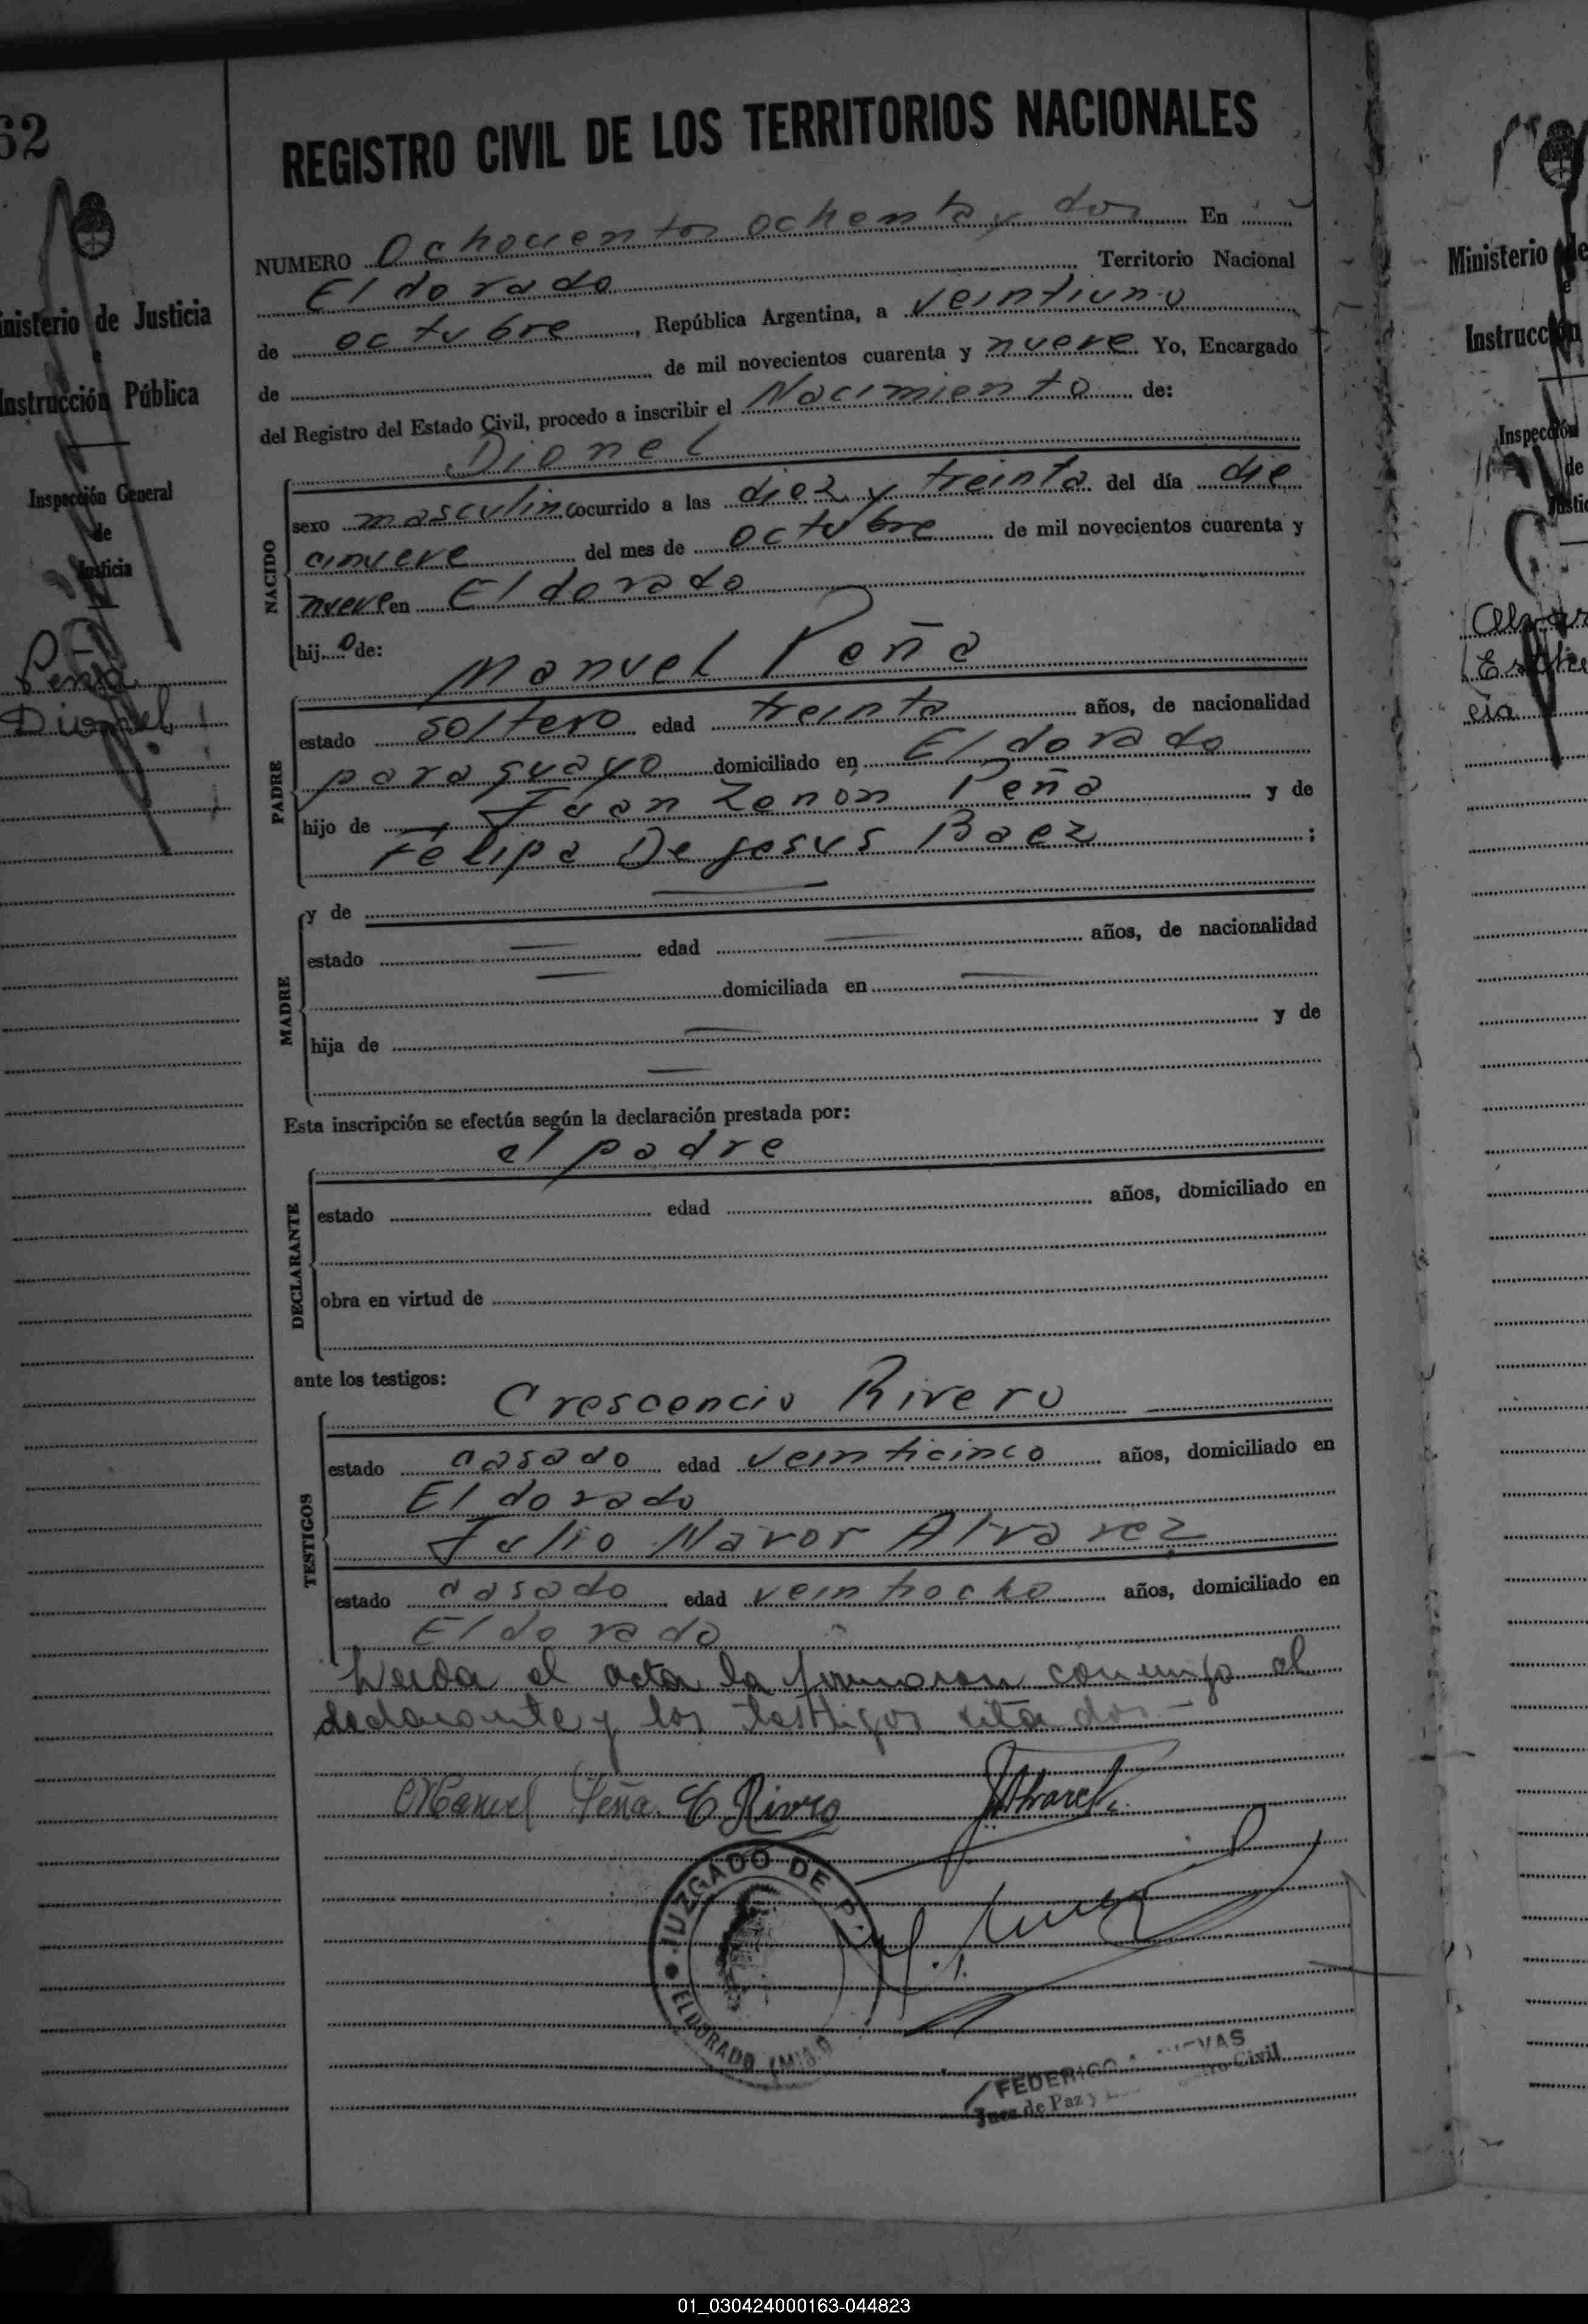 62
Ministerio de Justicia
e
Instrucción Pública
Inspección General
de
Justicia
Peña
Dionel
REGISTRO CIVIL DE LOS TERRITORIOS NACIONALES
NUMERO Ochocientos ochenta y dos En
El dorado Territorio Nacional
de octubre, República Argentina, a veintiuno
de de mil novecientos cuarenta y nueve Yo, Encargado
del Registro del Estado Civil, procedo a inscribir el Nacimiento de:
Dionel
NACIDO
sexo masculino ocurrido a las diez y treinta del día die
cinueve del mes de octubre de mil novecientos cuarenta y
nueve en El dorado
hijo de:
Manuel Peña
PADRE
estado soltero edad treinta años, de nacionalidad
paraguayo domiciliado en El dorado
hijo de Juan Zenón Peña y de
Felipa De Jesus Baez ;
MADRE
y de
estado edad años, de nacionalidad
domiciliada en
hija de y de
Esta inscripción se efectúa según la declaración prestada por:
el padre
DECLARANTE
estado edad años, domiciliado en
obra en virtud de
ante los testigos:
Crescencio Rivero
TESTIGOS
estado casado edad veinticinco años, domiciliado en
El dorado
Julio Navor Alvarez
estado casado edad veintiocho años, domiciliado en
El dorado
Leida el acta la firmaron conmigo el
declarante y los testigos citados.-
Manuel Peña C Rivero JNAlvarez
JUZGADO DE P
ELDORADO (Mis.)
FEDERICO
Juez de Paz y Civil
Ministerio de
e
Instrucción
Inspección
de
Justicia
01_030424000163-044823